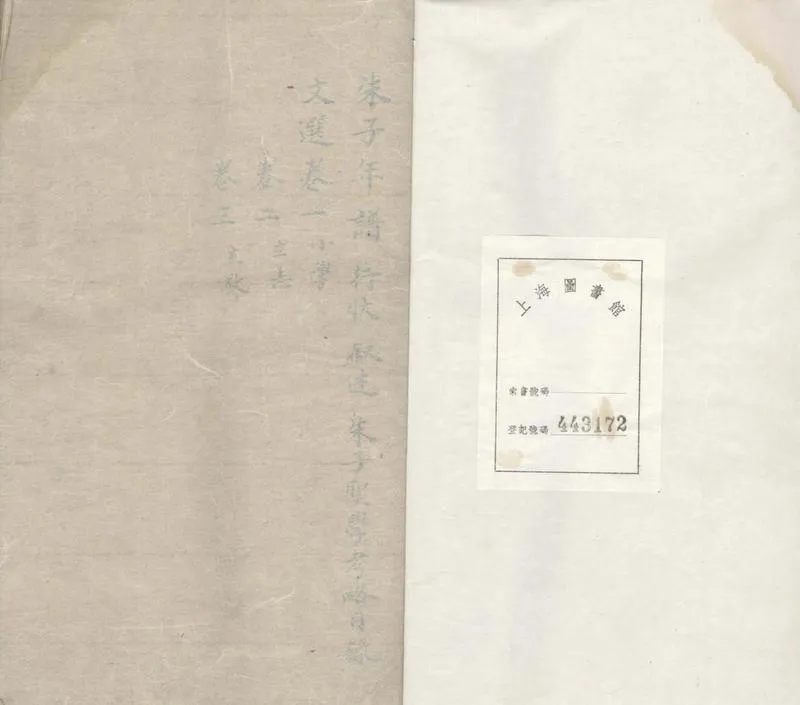 朱子年譜 行狀 叙述 朱子聖學考略目錄
文選卷一 小學
卷二 立志
卷三 主敬
上海圖書館
索書號碼
登記號碼 443172